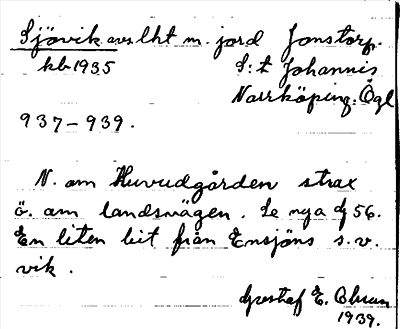 Sjövik avs. lht m. jord Jonstorp.
kb 1935 S:t Johannis
Norrköping: Ögl
937-939.
N. om Huvudgården strax
ö. om landsvägen. Se nya dj 56.
En liten bit från Ensjöns s.v.
vik.
Gustaf E.
1939.